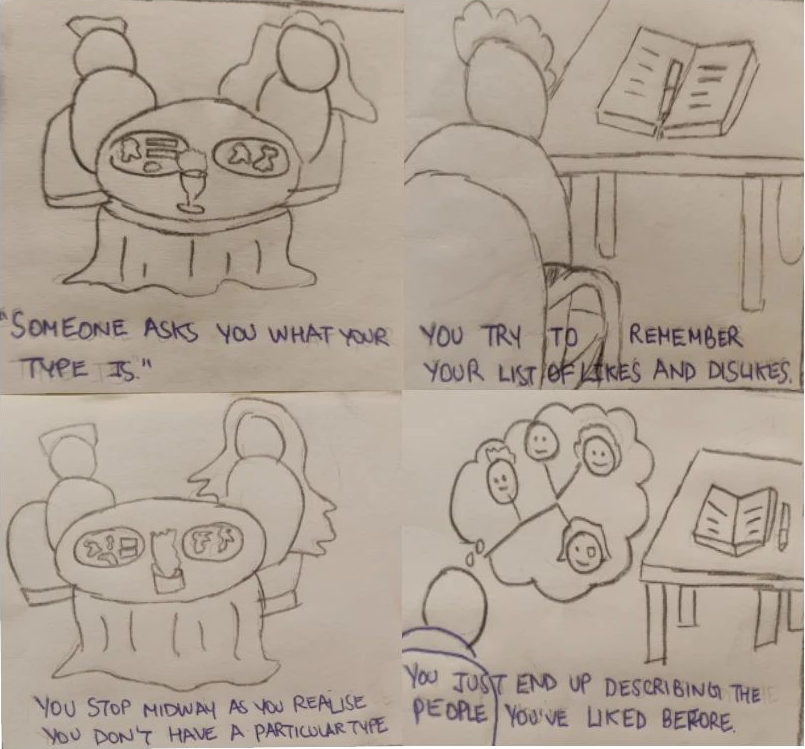 "SOMEONE ASKS YOU WHAT YOUR
TYPE IS."
YOU TRY TO REMEMBER
YOUR LIST OF LIKES AND DISLIKES.
YOU STOP MIDWAY AS YOU REALISE
YOU DON'T HAVE A PARTICULAR TYPE
YOU JUST END UP DESCRIBING THE
PEOPLE YOU'VE LIKED BEFORE.